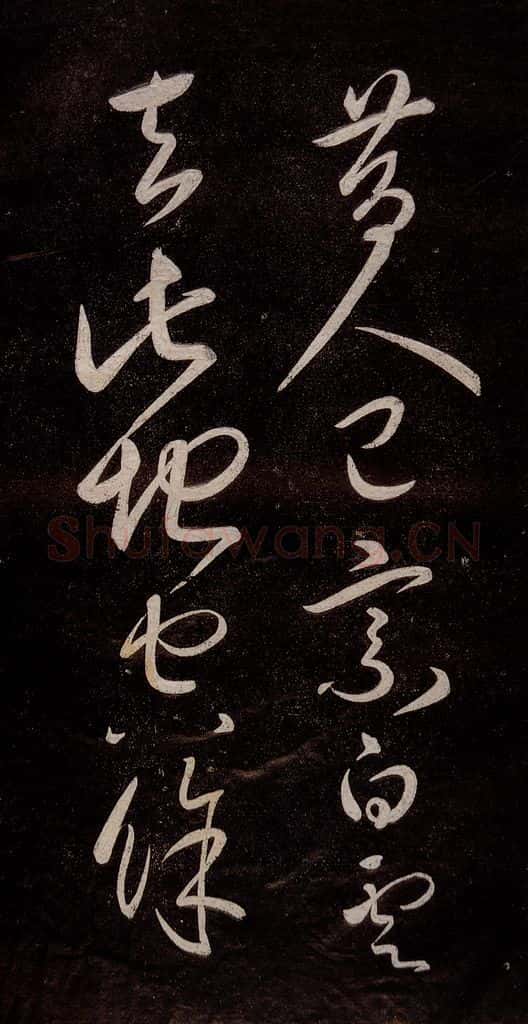 昔人已乘白雲
去此地空餘
Shufawang.CN